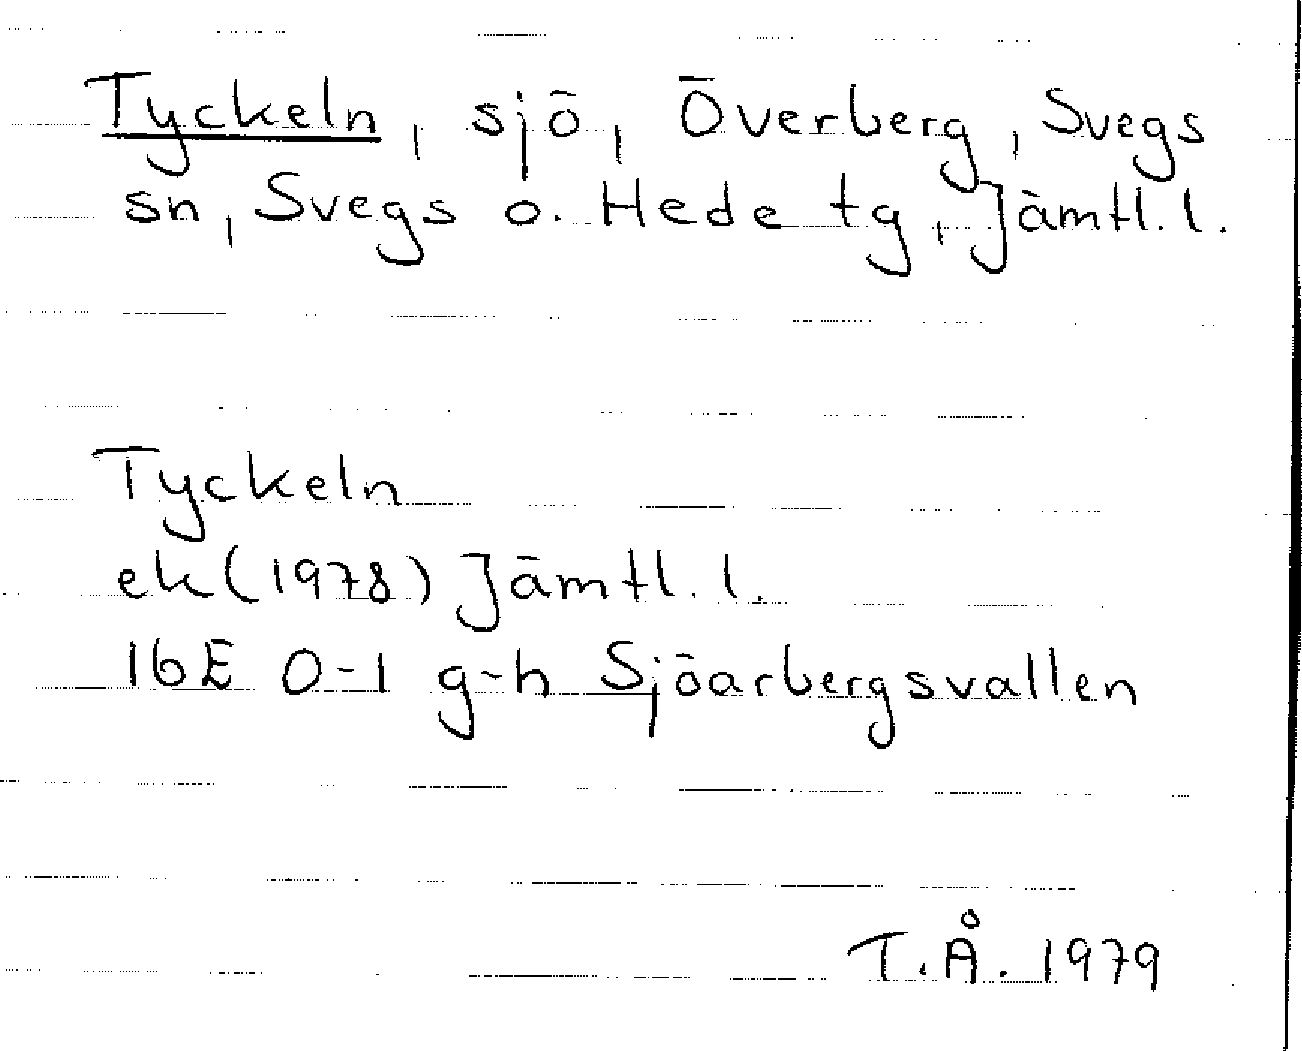 Tyckeln, sjö, Överberg, Svegs
sn, Svegs o. Hede tg, Jämtl. l.
Tyckeln
ek (1978) Jämtl. l.
16E 0-1 g-h Sjöarbergsvallen
T.Å. 1979